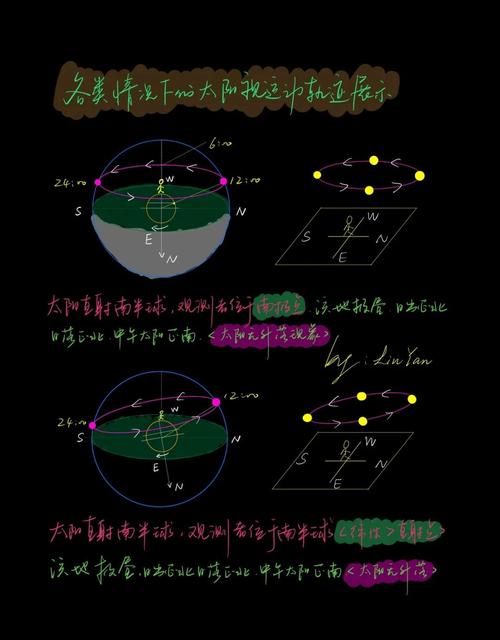 各类情况下的太阳视运动轨迹展示
6:00
24:00
12:00
S
W
N
E
N
S
W
N
E
太阳直射南半球，观测者位于南极点，该地极昼，日出正北
日落正北，中午太阳正南，<太阳无升落现象>
by：LiuYan
24:00
12:00
S
W
N
E
N
S
W
N
E
太阳直射南半球，观测者位于南半球<纬性>直射点
该地极昼，日出正北日落正北，中午太阳正南<太阳无升落>